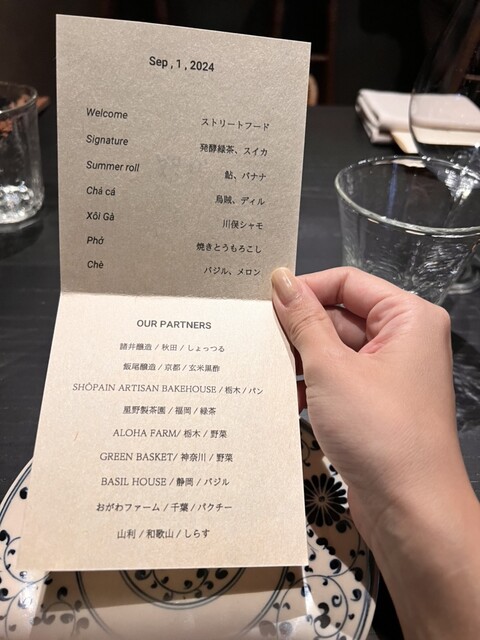 Sep , 1 , 2024
Welcome ストリートフード
Signature 発酵緑茶、スイカ
Summer roll 鮎、バナナ
Chá cá 烏賊、ディル
Xôi Gà 川俣シャモ
Phở 焼きとうもろこし
Chè バジル、メロン
OUR PARTNERS
諸井醸造 / 秋田 / しょっつる
飯尾醸造 / 京都 / 玄米黒酢
SHŌPAIN ARTISAN BAKEHOUSE / 栃木 / パン
星野製茶園 / 福岡 / 緑茶
ALOHA FARM/ 栃木 / 野菜
GREEN BASKET/ 神奈川 / 野菜
BASIL HOUSE / 静岡 / バジル
おがわファーム / 千葉 / パクチー
山利 / 和歌山 / しらす